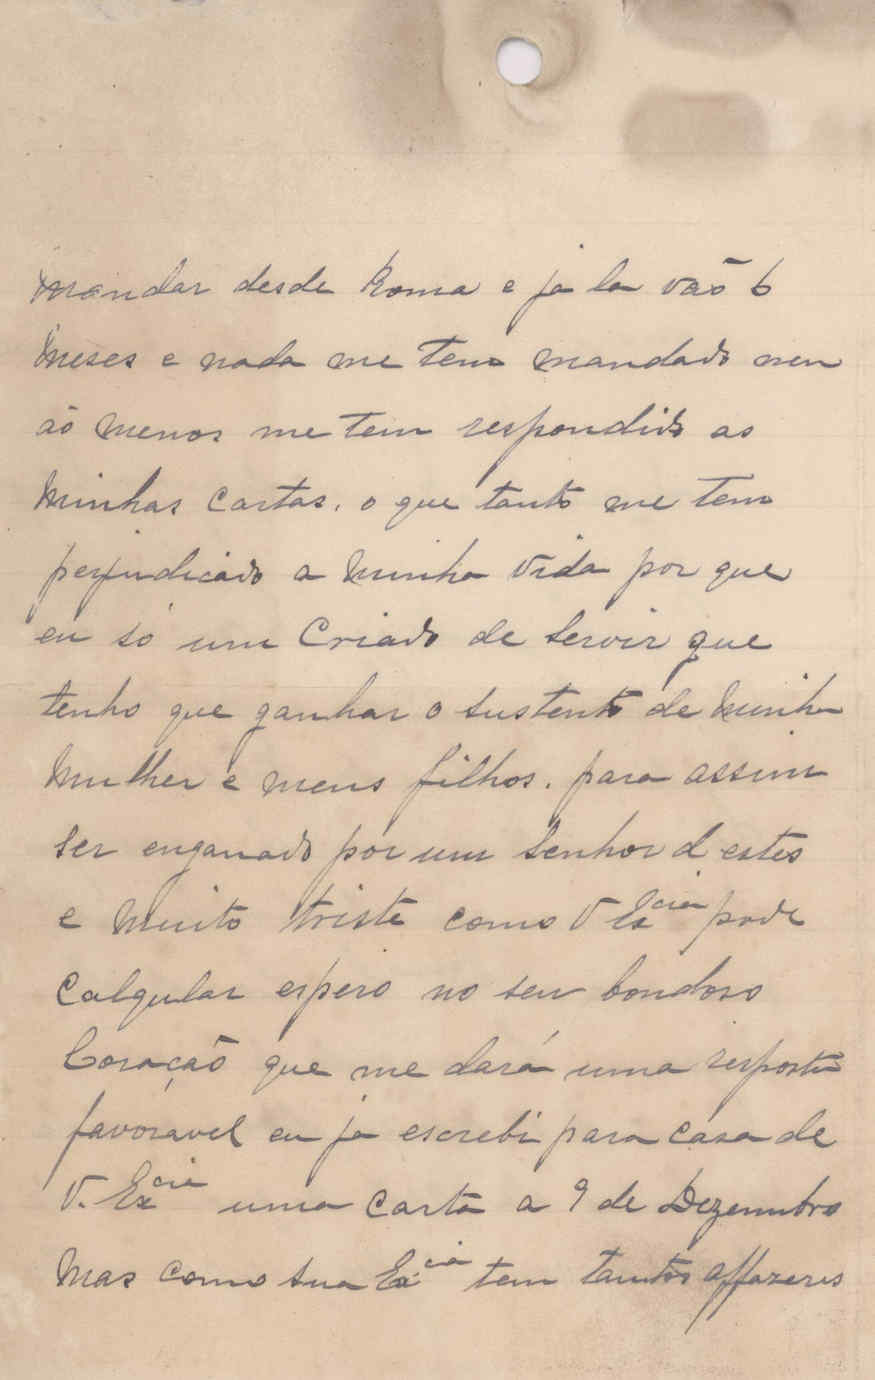 mandar desde Roma e ja la vaõ 6
meses e nada me tem mandado nen
aõ menos me tem respondido as
minhas cartas. o que tanto me tem
perjudicado a minha vida por que
eu só um Criado de servir que
tenho que ganhar o sustento de minha
mulher e meus filhos. para assim
ser enganado por um senhor d estes
e muito triste como V Ex^cia pode
Calgular espero no seu bondoso
Coraçaõ que me dará uma resposta
favoravel eu ja escrebi para casa de
V. Ex^cia uma Carta a 9 de Dezembro
mas como sua Ex^cia tem tantos affazeres